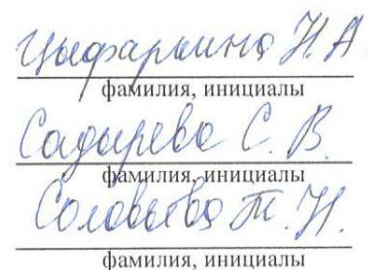 Цыфаркина Н.А
фамилия, инициалы
Садырева С.В.
фамилия, инициалы
Соловьева Т.Н.
фамилия, инициалы